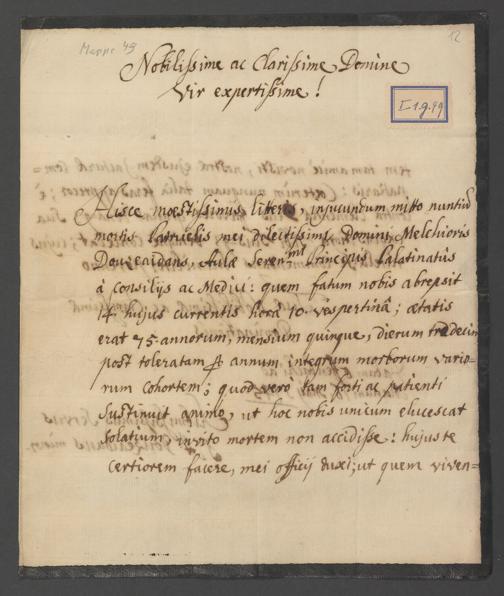 Mappe 49
12
Nobilissime ac Clarissime Domine
Vir expertissime!
I.1.g.99
Hisce moestissimis litteris, injucundum mitto nuntium
mortis Patruelis mei dilectissimi Domini Melchioris
Aulae Seren:mi Principis Palatinatus
à consilijs ac Medici: quem fatum nobis abrepsit
14 hujus currentis horâ 10 vespertinâ; aetatis
erat 75 annorum, mensium quinque, dierum tredecim
post toleratam p annum integrum morborum vario-
rum cohortem; quod vero tam forti ac patienti
sustinuit animo, ut hoc nobis unicum elucescat
solatium, invito mortem non accidisse: hujus te
certiorem facere, mei officij duxi; ut quem viven=